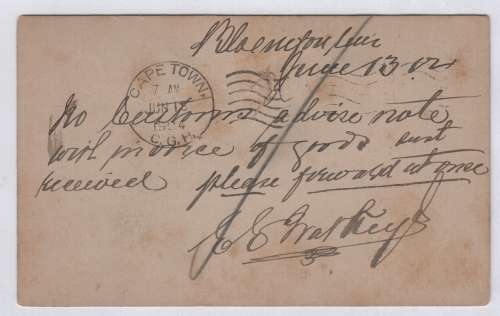 Bloemfontein
June 13 04
CAPE TOWN.
7 AM
JUN 17
1904
C.G.H.
No Customs advice note
with invoice of goods just
received please forward at once